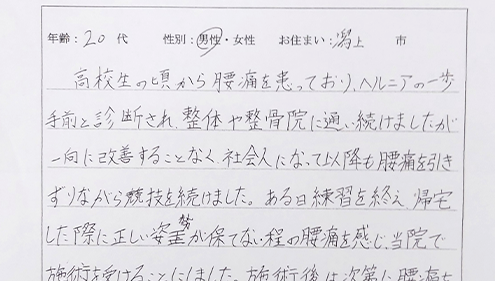 年齢：20 代 性別：男性・女性 お住まい：潟上 市
高校生の頃から腰痛を患っており、ヘルニアの一歩
手前と診断され、整体や整骨院に通い続けましたが
一向に改善することなく、社会人になって以降も腰痛を引き
ずりながら競技を続けました。ある日練習を終え、帰宅
した際に正しい姿勢が保てない程の腰痛を感じ、当院で
施術を受けることにしました。施術後は次第に腰痛も